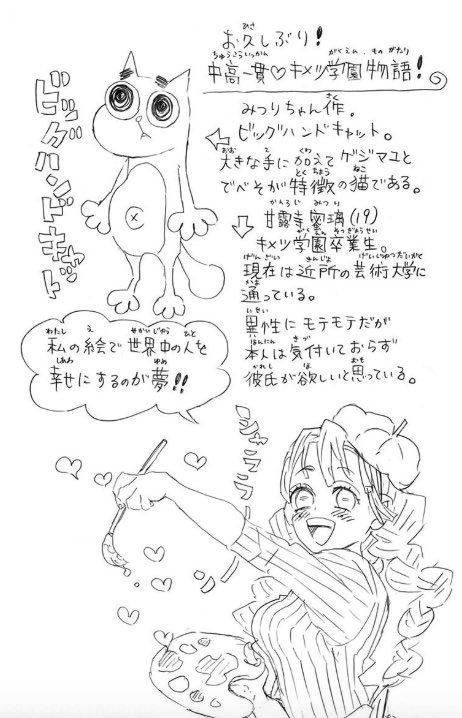 お久しぶり!
中高一貫♡キメツ学園物語!
みつりちゃん作。
ビッグハンドキャット。
大きな手に加えてゲジマユと
でべそが特徴の猫である。
ビッグハンドキャット
甘露寺蜜璃(19)
キメツ学園卒業生。
現在は近所の芸術大学に
通っている。
異性にモテモテだが
本人は気付いておらず
彼氏が欲しいと思っている。
私の絵で世界中の人を
幸せにするのが夢!!